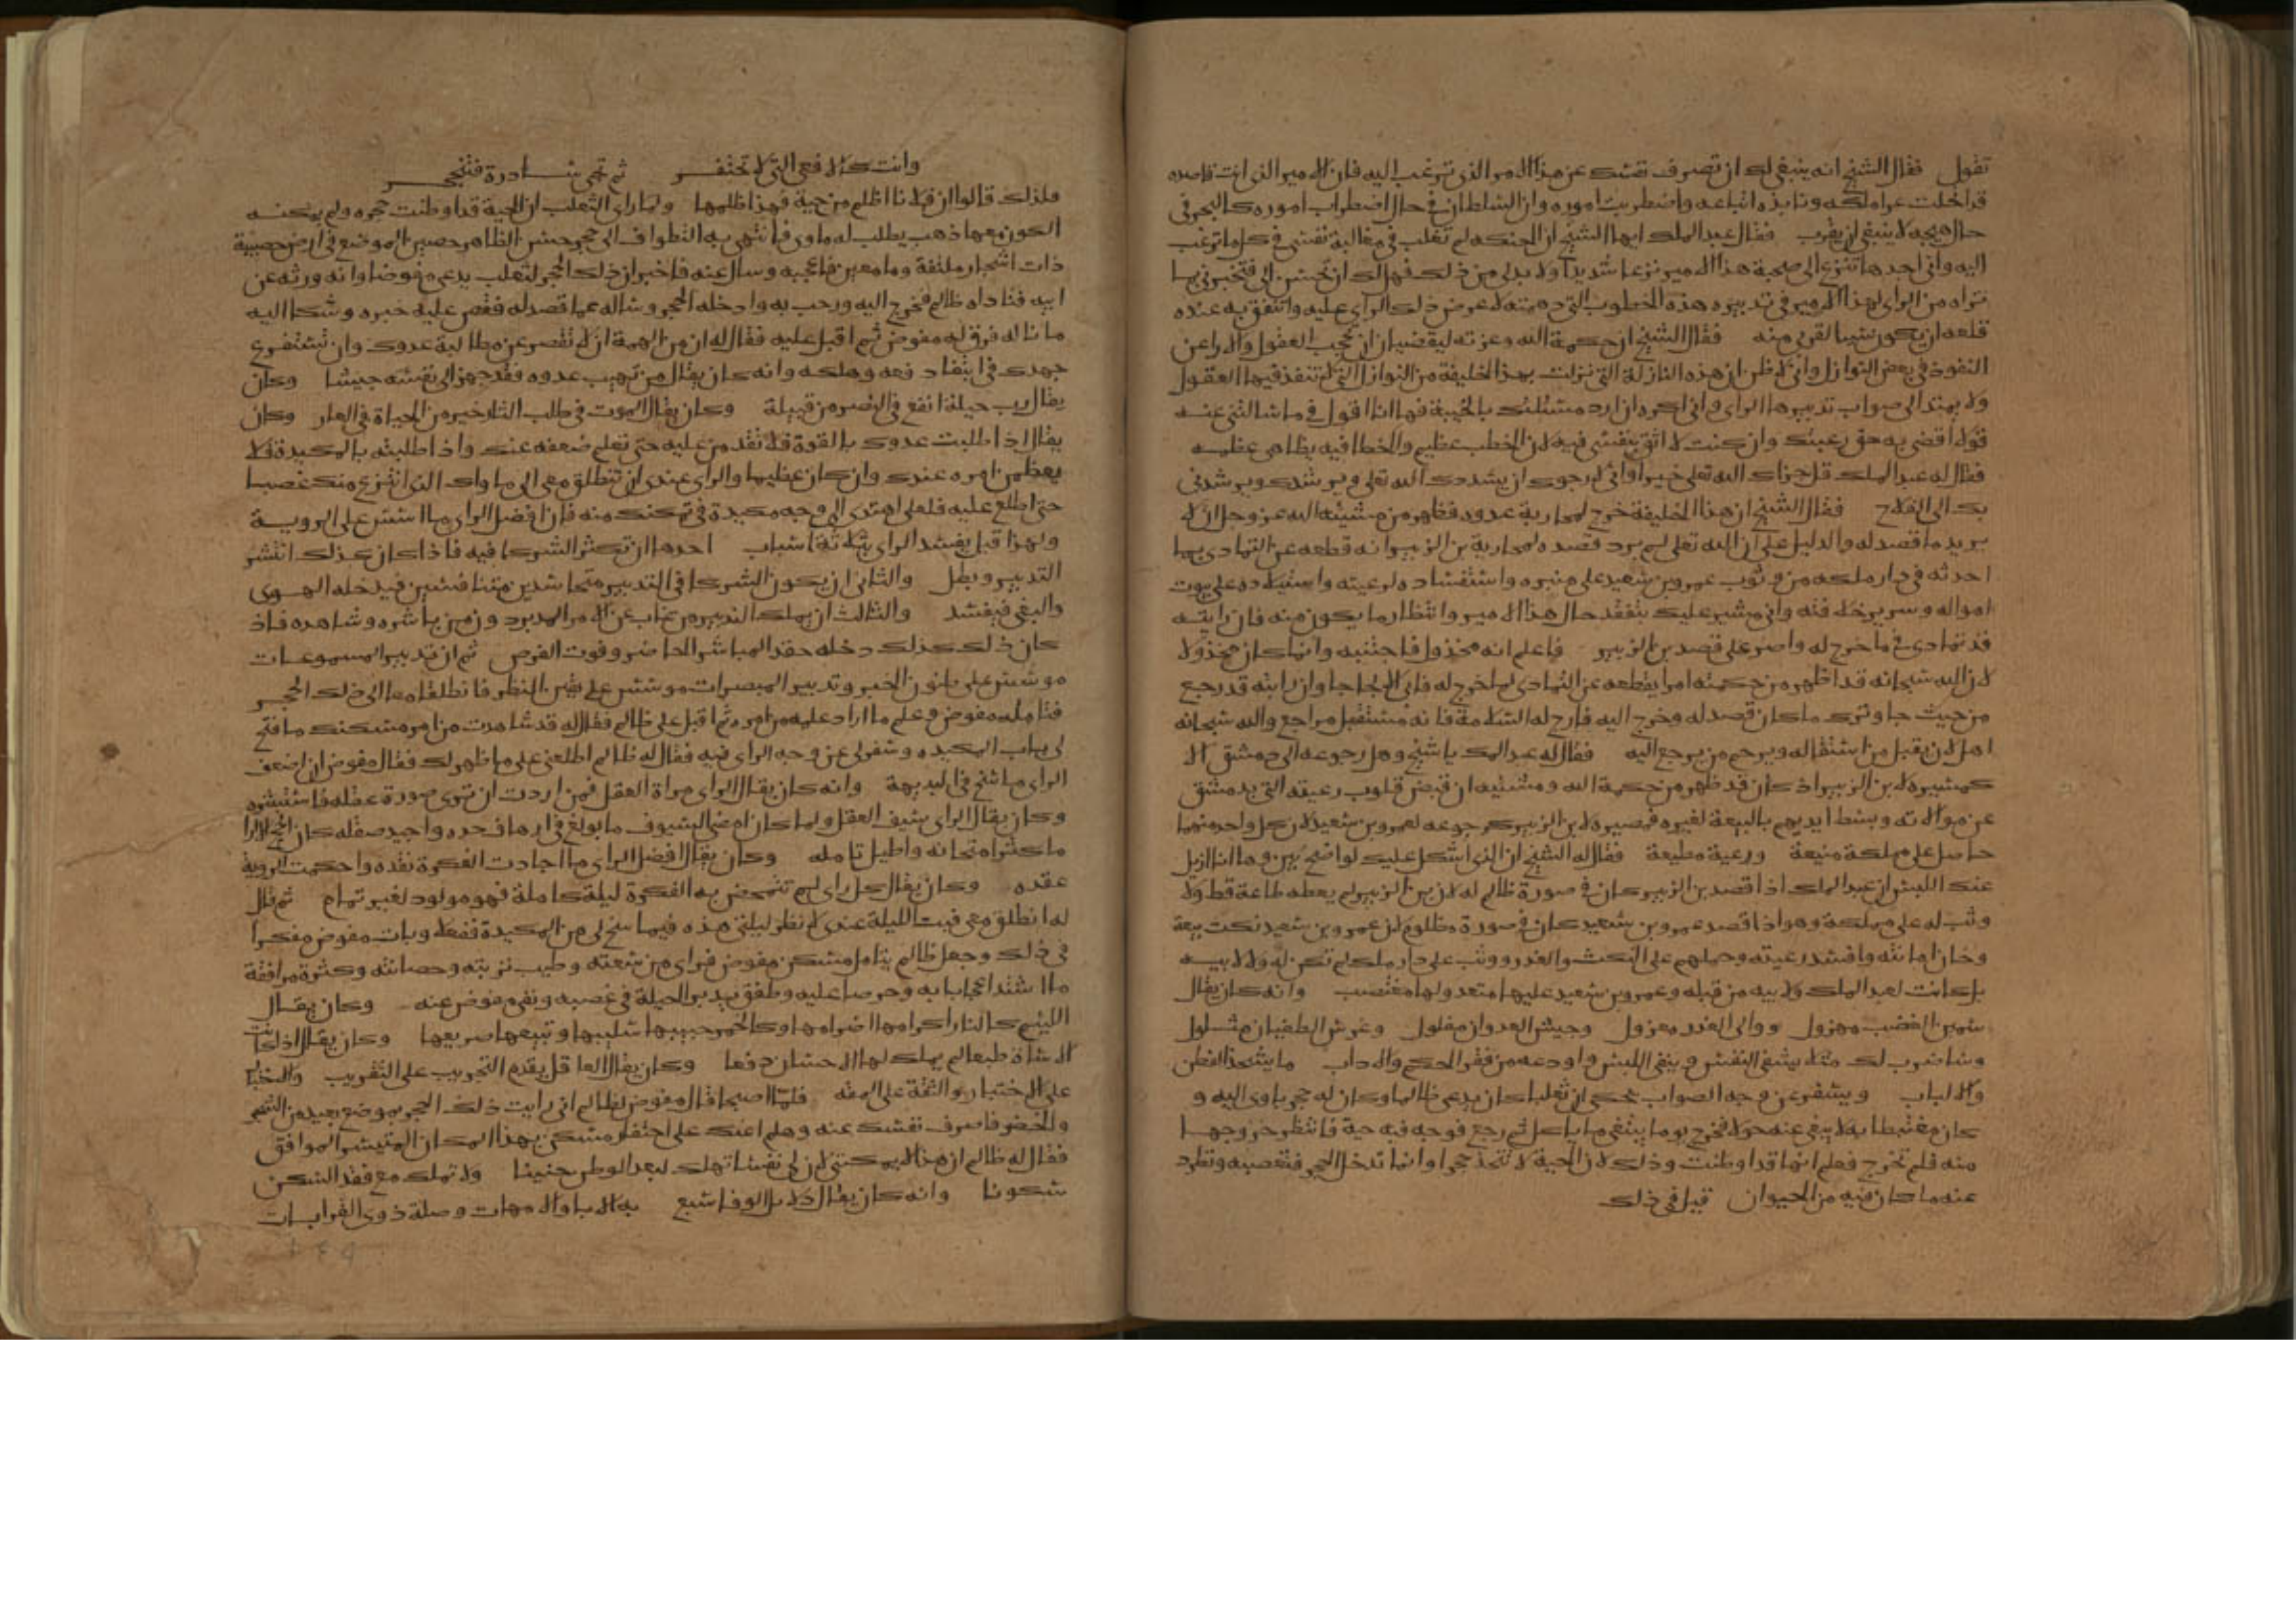 تقول فقال الشيخ انه ينبغي لك ان تصرف نفسك عن هذا الامر الذي ترغب اليه فان الامير الذي انت قاصده
قد اخلت عرا ملكه ونابذه اتباعه واضطربت اموره وان السلطان في حال اضطراب اموره كالبحر في
حال هيجه لا ينبغي ان يقرب فقال عبد الملك ايها الشيخ ان الحنكه لم تغلب في مغالبة نفسي في كل ما ترغب
اليه واني اجدها تنزع الى صحبة هذا الامير نزعا شديدا ولا بد لي من ذلك فهل لك ان تحسن الي فتخبرني بما
تراه من الراي لهذا الامير في تدبيره هذه الخطوب التي دهمته لاعرض ذلك الراي عليه واتنفق به عنده
فلعله ان يكون سببا لقربي منه فقال الشيخ ان حكمة الله وعزته ليقضيان ان تحجب العقول والاراعن
النفوذ في بعض النوازل واني لاظن ان هذه النازلة التي نزلت بهذا الخليفة من النوازل التي لا تنفذ فيها العقول
ولا يهتدا الى صواب تدبيرها الراي واني اكره ان ارد مسئلتك بالخيبة فها انا اقول في ما سالتني عنه
قولا اقضي به حق رغبتك وان كنت لا اثق بنفسي فيه لان الخطب عظيم والخطا فيه يظاهي عظمه
فقال له عبد الملك قل جزاك الله تعلى خيرا واني لارجوك ان يسددك الله تعلى ويرشدك ويرشدني
بك الى الفلاح فقال الشيخ ان هذا الخليفة خرج لمحاربة عدوه فظهر من مشيئه الله عز وجل ان لا
يريد ما قصد له والدليل على ان الله تعلى لم يرد قصده لمحاربة بن الزبير انه قطعه عن التمادي بما
احدثه في دار ملكه من وثوب عمرو بن سعيد على منبره واستفساده لرعيته واستيلاءه على بيوت
امواله وسرير خلافته واني مشير عليك بتفقد حال هذا الامير وانتظار ما يكون منه فان رايته
قد تمادى في ما خرج له واصر على قصد بن الزبير فاعلم انه مخذول فاجتنبه وانما كان مخذولا
لان الله سبحانه قد اظهر من حكمته امرا يقطعه عن التمادي لما خرج له فابى الا لجاجا وان رايته قد رجع
من حيث جا وترك ما كان قصد له وخرج اليه فارج له السلامة فانه مستقبل مراجع والله سبحانه
اهل لان يقبل من استقاله ويرحم من يرجع اليه فقال له عبد الملك يا شيخ وهل رجوعه الى دمشق الا
كمسيره لابن الزبير اذ كان قد ظهر من حكمة الله ومشيئه ان قبض قلوب رعيته التي بدمشق
عن موالاته وبسط ايديهم بالبيعة لغيره فمصيره لابن الزبير كرجوعه لعمرو بن سعيد لان كل واحد منهما
حاصل على مملكة منيعة ورعية مطيعة فقال له الشيخ ان الذي اشكل عليك لواضح بين وها انا ازيل
عنك اللبس ان عبد الملك اذا قصد بن الزبير كان في صورة ظالم له لان بن الزبير لم يعطه طاعة قط ولا
وثب له على مملكة وهو اذا قصد عمرو بن سعيد كان في صورة مظلوم لان عمرو بن سعيد نكث بيعة
وخان امانته وافسد رعيته وحملهم على النكث والغدر ووثب على دار ملك لم تكن له ولا لابيه
بل كانت لعبد الملك ولابيه من قبله وعمرو بن سعيد عليها متعد ولها مغتصب وانه كان يقال
سمين الغضب مهزول ووالي الغدر معزول وجيش العدوان مفلول وعرش الطغيان مثلول
وساضرب لك مثلا يشفي النفس وينفي اللبس واودعه من فقر الحكم والاداب ما يشحذ الفطن
والالباب ويسفر عن وجه الصواب يحكى ان ثعلبا كان يدعى ظالما وكان له جحر ياوي اليه و
كان مغتبطا به لا يبغي عنه حولا فخرج يوما يبتغي ما ياكل ثم رجع فوجد فيه حية فانتظر خروجها
منه فلم تخرج فعلم انها قد اوطنت وذلك لان الحية لا تتخذ جحرا وانما تدخل الجحر فتغصبه وتطرد
عنه ما كان فيه من الحيوان قيل في ذلك
وانت كالافعى التي لا تحتفر ثم تجي سادرة فتنجحر
فلذلك قالوا ان فلانا اظلم من حية فهذا ظلمها ولما راى الثعلب ان الحية قد اوطنت جحره ولم يمكنه
الكون معها ذهب يطلب له ماوى فانتهى به التطواف الى جحر حسن الظاهر حصين الموضع في ارض خصيبة
ذات اشجار ملتفة وما معين فاعجبه وسال عنه فاخبر ان ذلك الجحر لثعلب يدعى مفوضا وانه ورثه عن
ابيه فناداه ظالم فخرج اليه ورحب به وادخله الجحر وساله عما قصد له فقص عليه خبره وشكا اليه
ما ناله فرق له مفوض ثم اقبل عليه فقال له ان من الهمة ان لا تقصر عن مطالبة عدوك وان تستفرغ
جهدك في ابتغاء دفعه وهلكه وانه كان يقال من تهيب عدوه فقد جهز الى نفسه جيشا وكان
يقال رب حيلة انفع في النصر من قبيلة وكان يقال الموت في طلب الثار خير من الحياة في العار وكان
يقال اذا طلبت عدوك بالقوة فلا تقدمن عليه حتى تعلم ضعفه عنك واذا طلبته بالمكيدة فلا
يعظمن امره عندك وان كان عظيما والراي عندي ان تنطلق معي الى ماواك الذي انتزع منك غصبا
حتى اطلع عليه فلعلي اهتدي الى وجه مكيدة في تمكنك منه فان افضل الراي ما اسس على الروية
ولهذا قيل يفسد الراي بثلاثة اسباب احدها ان تكثر الشركا فيه فاذا كان كذلك انتشر
التدبير وبطل والثاني ان يكون الشركا في التدبير متحاسدين متنافسين فيدخله الهوى
والبغي فيفسد والثالث ان يملك التدبير من غاب عن الامر المدبر دون من باشره وشاهده فاذ
كان ذلك كذلك دخله حقد المباشر الحاضر وفوت الفرص ثم ان تدبير المسموعات
موسس على ظنون الخبر وتدبير المبصرات موسس على يقين النظر فانطلقا معا الى ذلك الجحر
فتامله مفوض وعلم ما اراد عليه من امره ثم اقبل على ظالم فقال له قد شاهدت من امر مسكنك ما فتح
لي باب المكيده وسفر لي عن وجه الراي فيه فقال له ظالم اطلعني على ما ظهر لك فقال مفوض ان اضعف
الراي ما سنح في البديهة وانه كان يقال الراي مراة العقل فمن اردت ان ترى صورة عقله فاستشره
وكان يقال الراي سيف العقل ولما كان امضى السيوف ما بولغ في ارهاف حده واجيد صقله كان انجح الارا
ما كثر امتحانه واطيل تامله وكان يقال افضل الراي ما اجادت الفكرة نقده واحكمت الروية
عقده وكان يقال كل راي لم تتمخض به الفكرة ليلة كاملة فهو مولود لغير تمام ثم قال
له انطلق معي فبت الليلة عندي لانظر ليلتي هذه فيما سنح لي من المكيدة ففعلا وبات مفوض مفكرا
في ذلك وجعل ظالم يتامل مسكن مفوض فراى من سعته وطيب تربته وحصانته وكثرة مرافقه
ما اشتد اعجابا به وحرصا عليه وطفق يدبر الحيلة في غصبه ونفي مفوض عنه وكان يقال
اللئيم كالنار اكرامها اضرامها وكالخمر حبيبها سليبها وتبيعها صريعها وكان يقال اذا كانت
الاساة طبعا لم يملك لها الاحسان دفعا وكان يقال العاقل يقدم التجريب على التقريب والاختبار
على الاختيار والثقة على المقه فلما اصبحا قال مفوض لظالم اني رايت ذلك الجحر بموضع بعيد من الشجر
والخضر فاصرف نفسك عنه وهلم اعنك على احتفار مسكن بهذا المكان المتيسر الموافق
فقال له ظالم ان هذا لا يمكنني لان لي نفسا تهلك لبعد الوطن حنينا ولا تملك مع فقد السكن
سكونا وانه كان يقال دلايل الوفا سبع به الابا والامهات وصلة ذوي القرابات